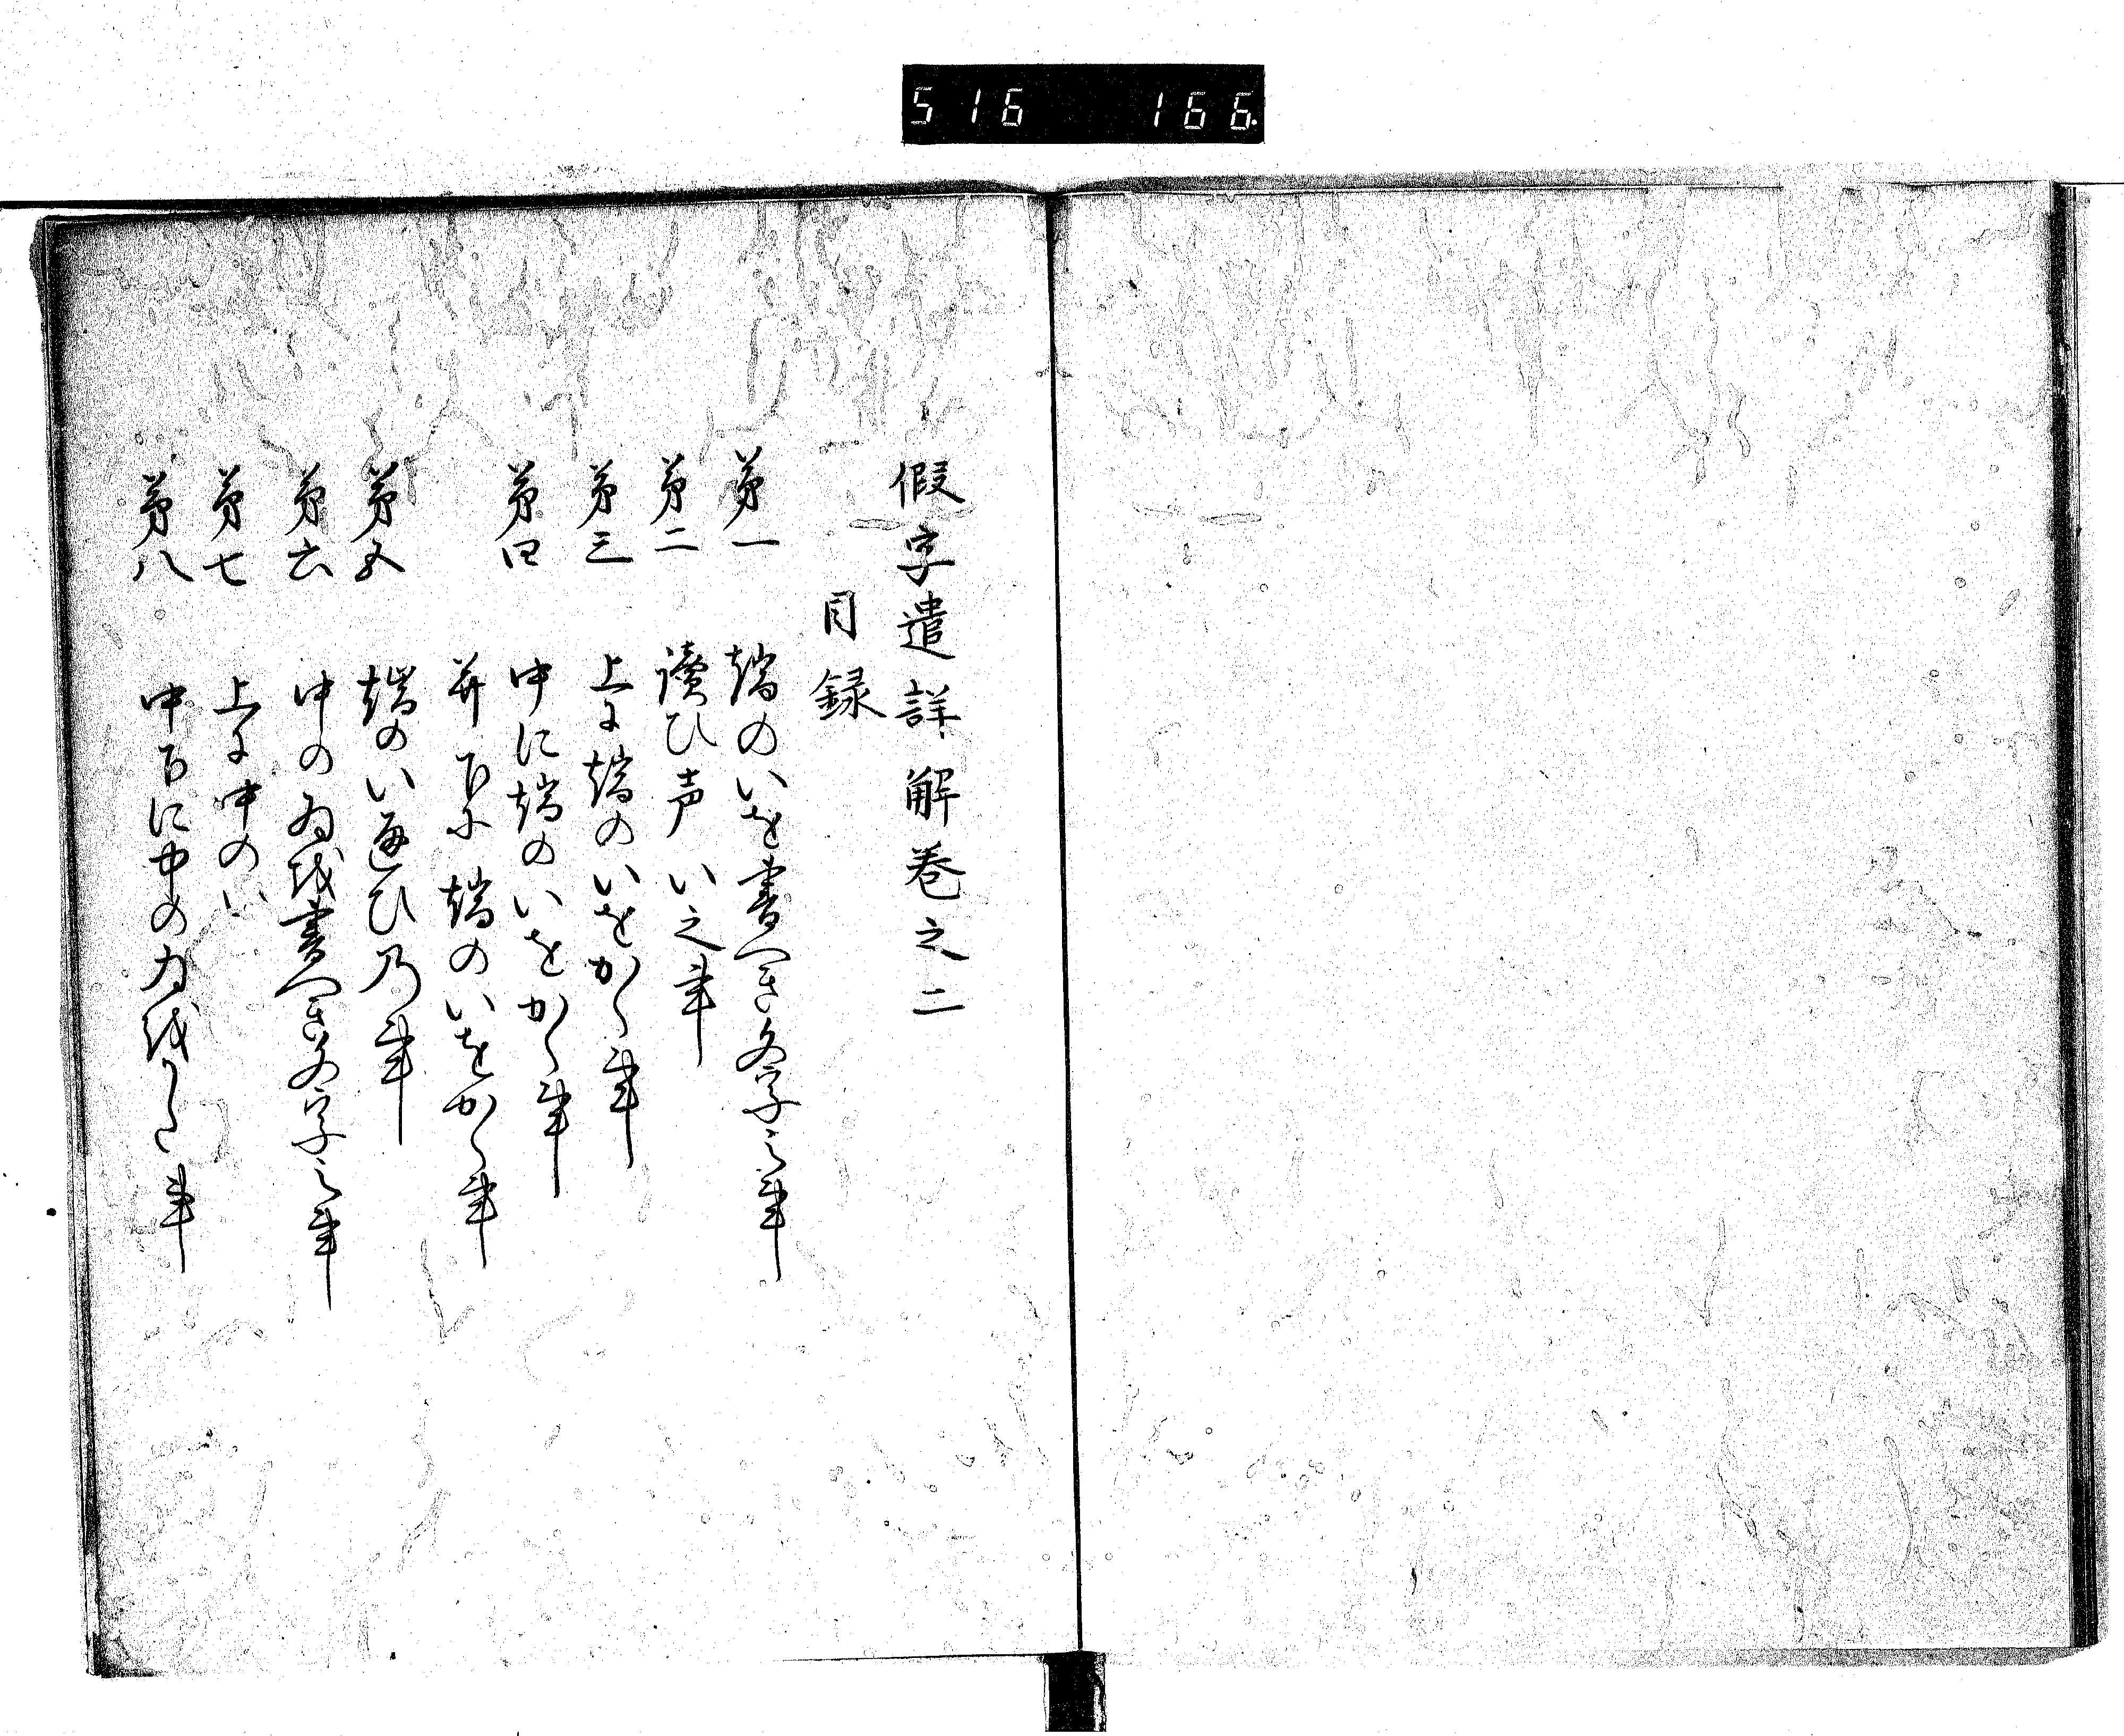 516 166
假字遣詳解巻之二
目録
第一 端のいを書へき文字之事
第二 讀ひ声い之事
第三 上に端のいをかく事
第四 中に端のいをかく事
并下に端のいをかく事
第五 端のい通ひ乃事
第六 中のゐ越書へき文字之事
第七 上に中のい
第八 中下に中のゐ越かく事